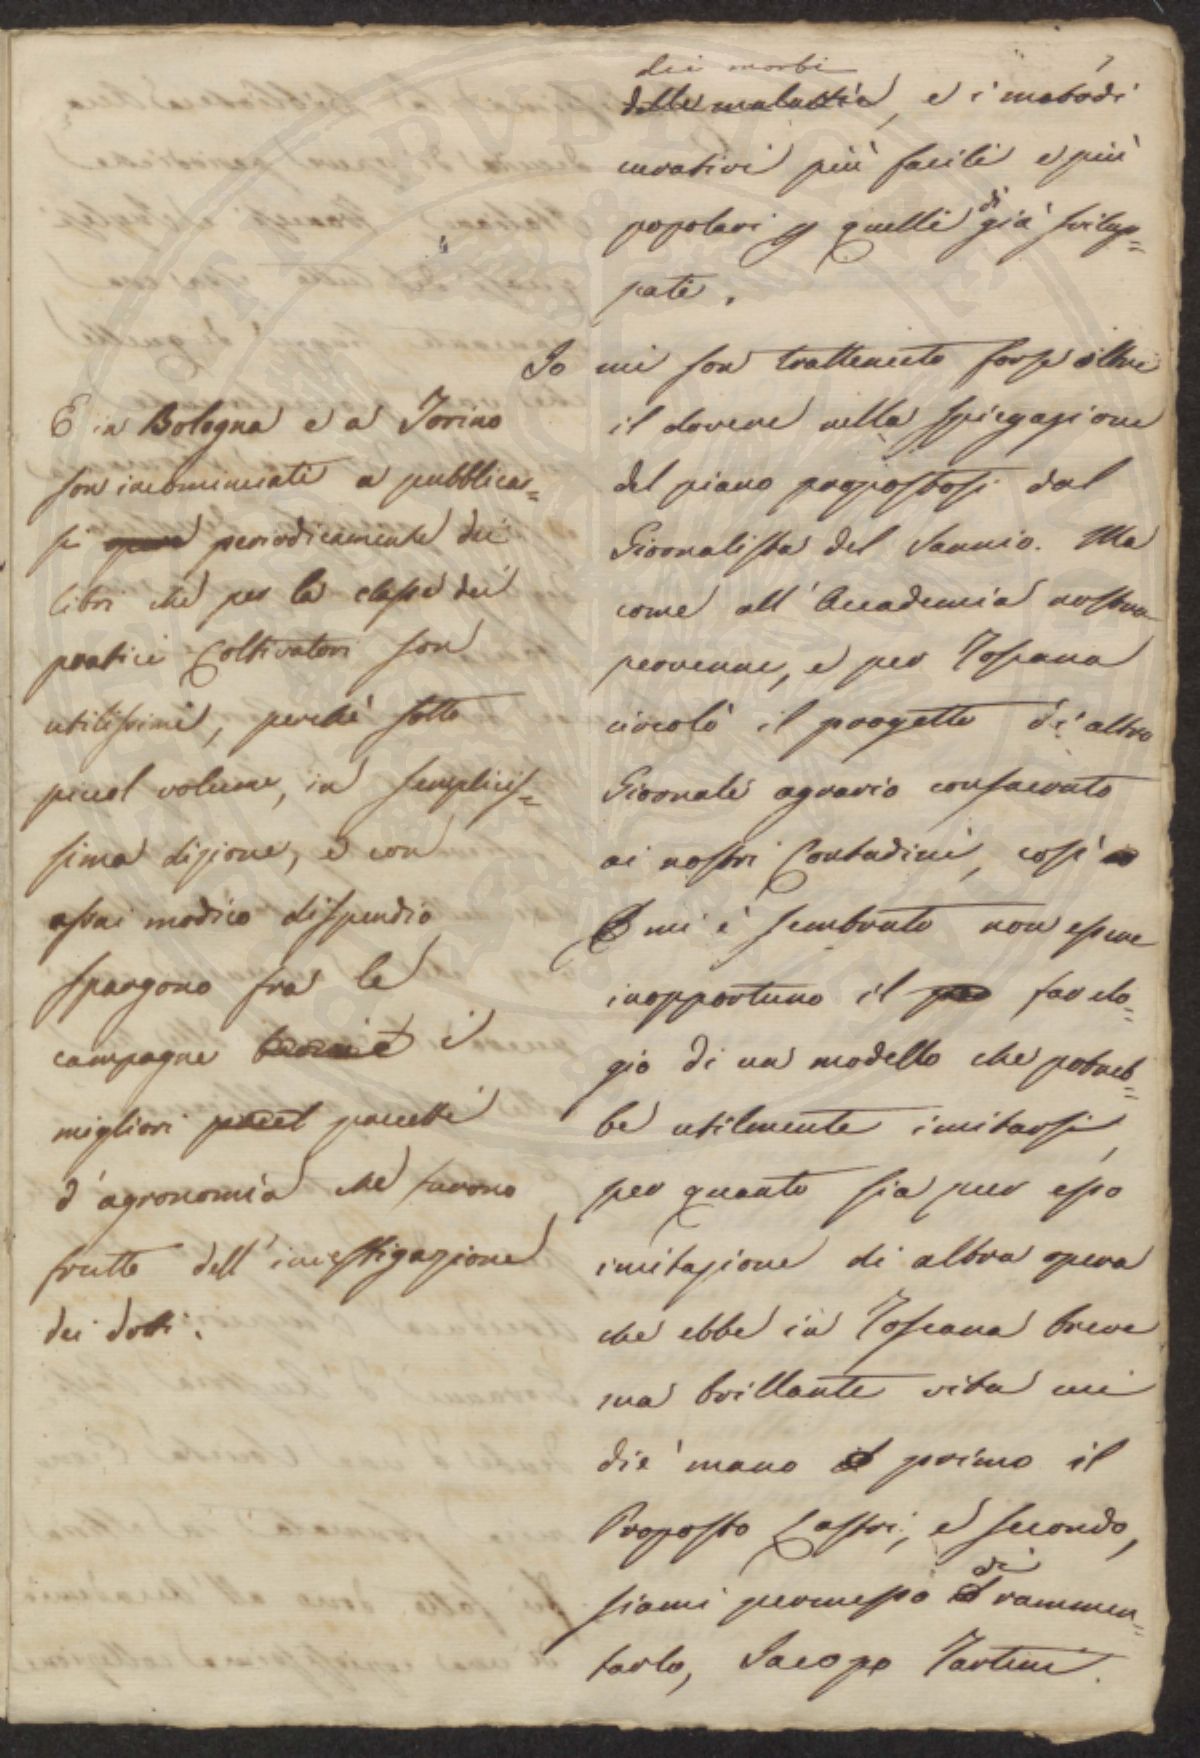 dei morbi
delle malattie, e i metodi
curativi più facili e più
popolari p quelli di già svilup=
pati.
Io mi son trattenuto forse oltre
il dovere nella spiegazione
del piano propostosi dal
Giornalista del Sannio. Ma
come all'Accademia nostra
pervenne, e per Toscana
circolò il progetto d'altro
Giornale agrario consacrato
ai nostri Contadini, così
mi è sembrato non essere
inopportuno il far elo=
gio di un modello che potreb=
be utilmente imitarsi,
per quanto sia pur esso
imitazione di altra opera
che ebbe in Toscana breve
ma brillante vita cui
diè mano primo il
Proposto Lastri, e secondo,
siami permesso di rammen=
tarlo, Jacopo Tartini.
E in Bologna e a Torino
son incominciati a pubblicar=
si periodicamente dei
libri che per la classe dei
pratici Coltivatori son
utilissimi, perchè sotto
piccol volume, in semplicis=
sima dizione, e con
assai modico dispendio
spargono fra le
campagne i
migliori precetti
d'agronomia che furono
frutto dell'investigazione
dei dotti.